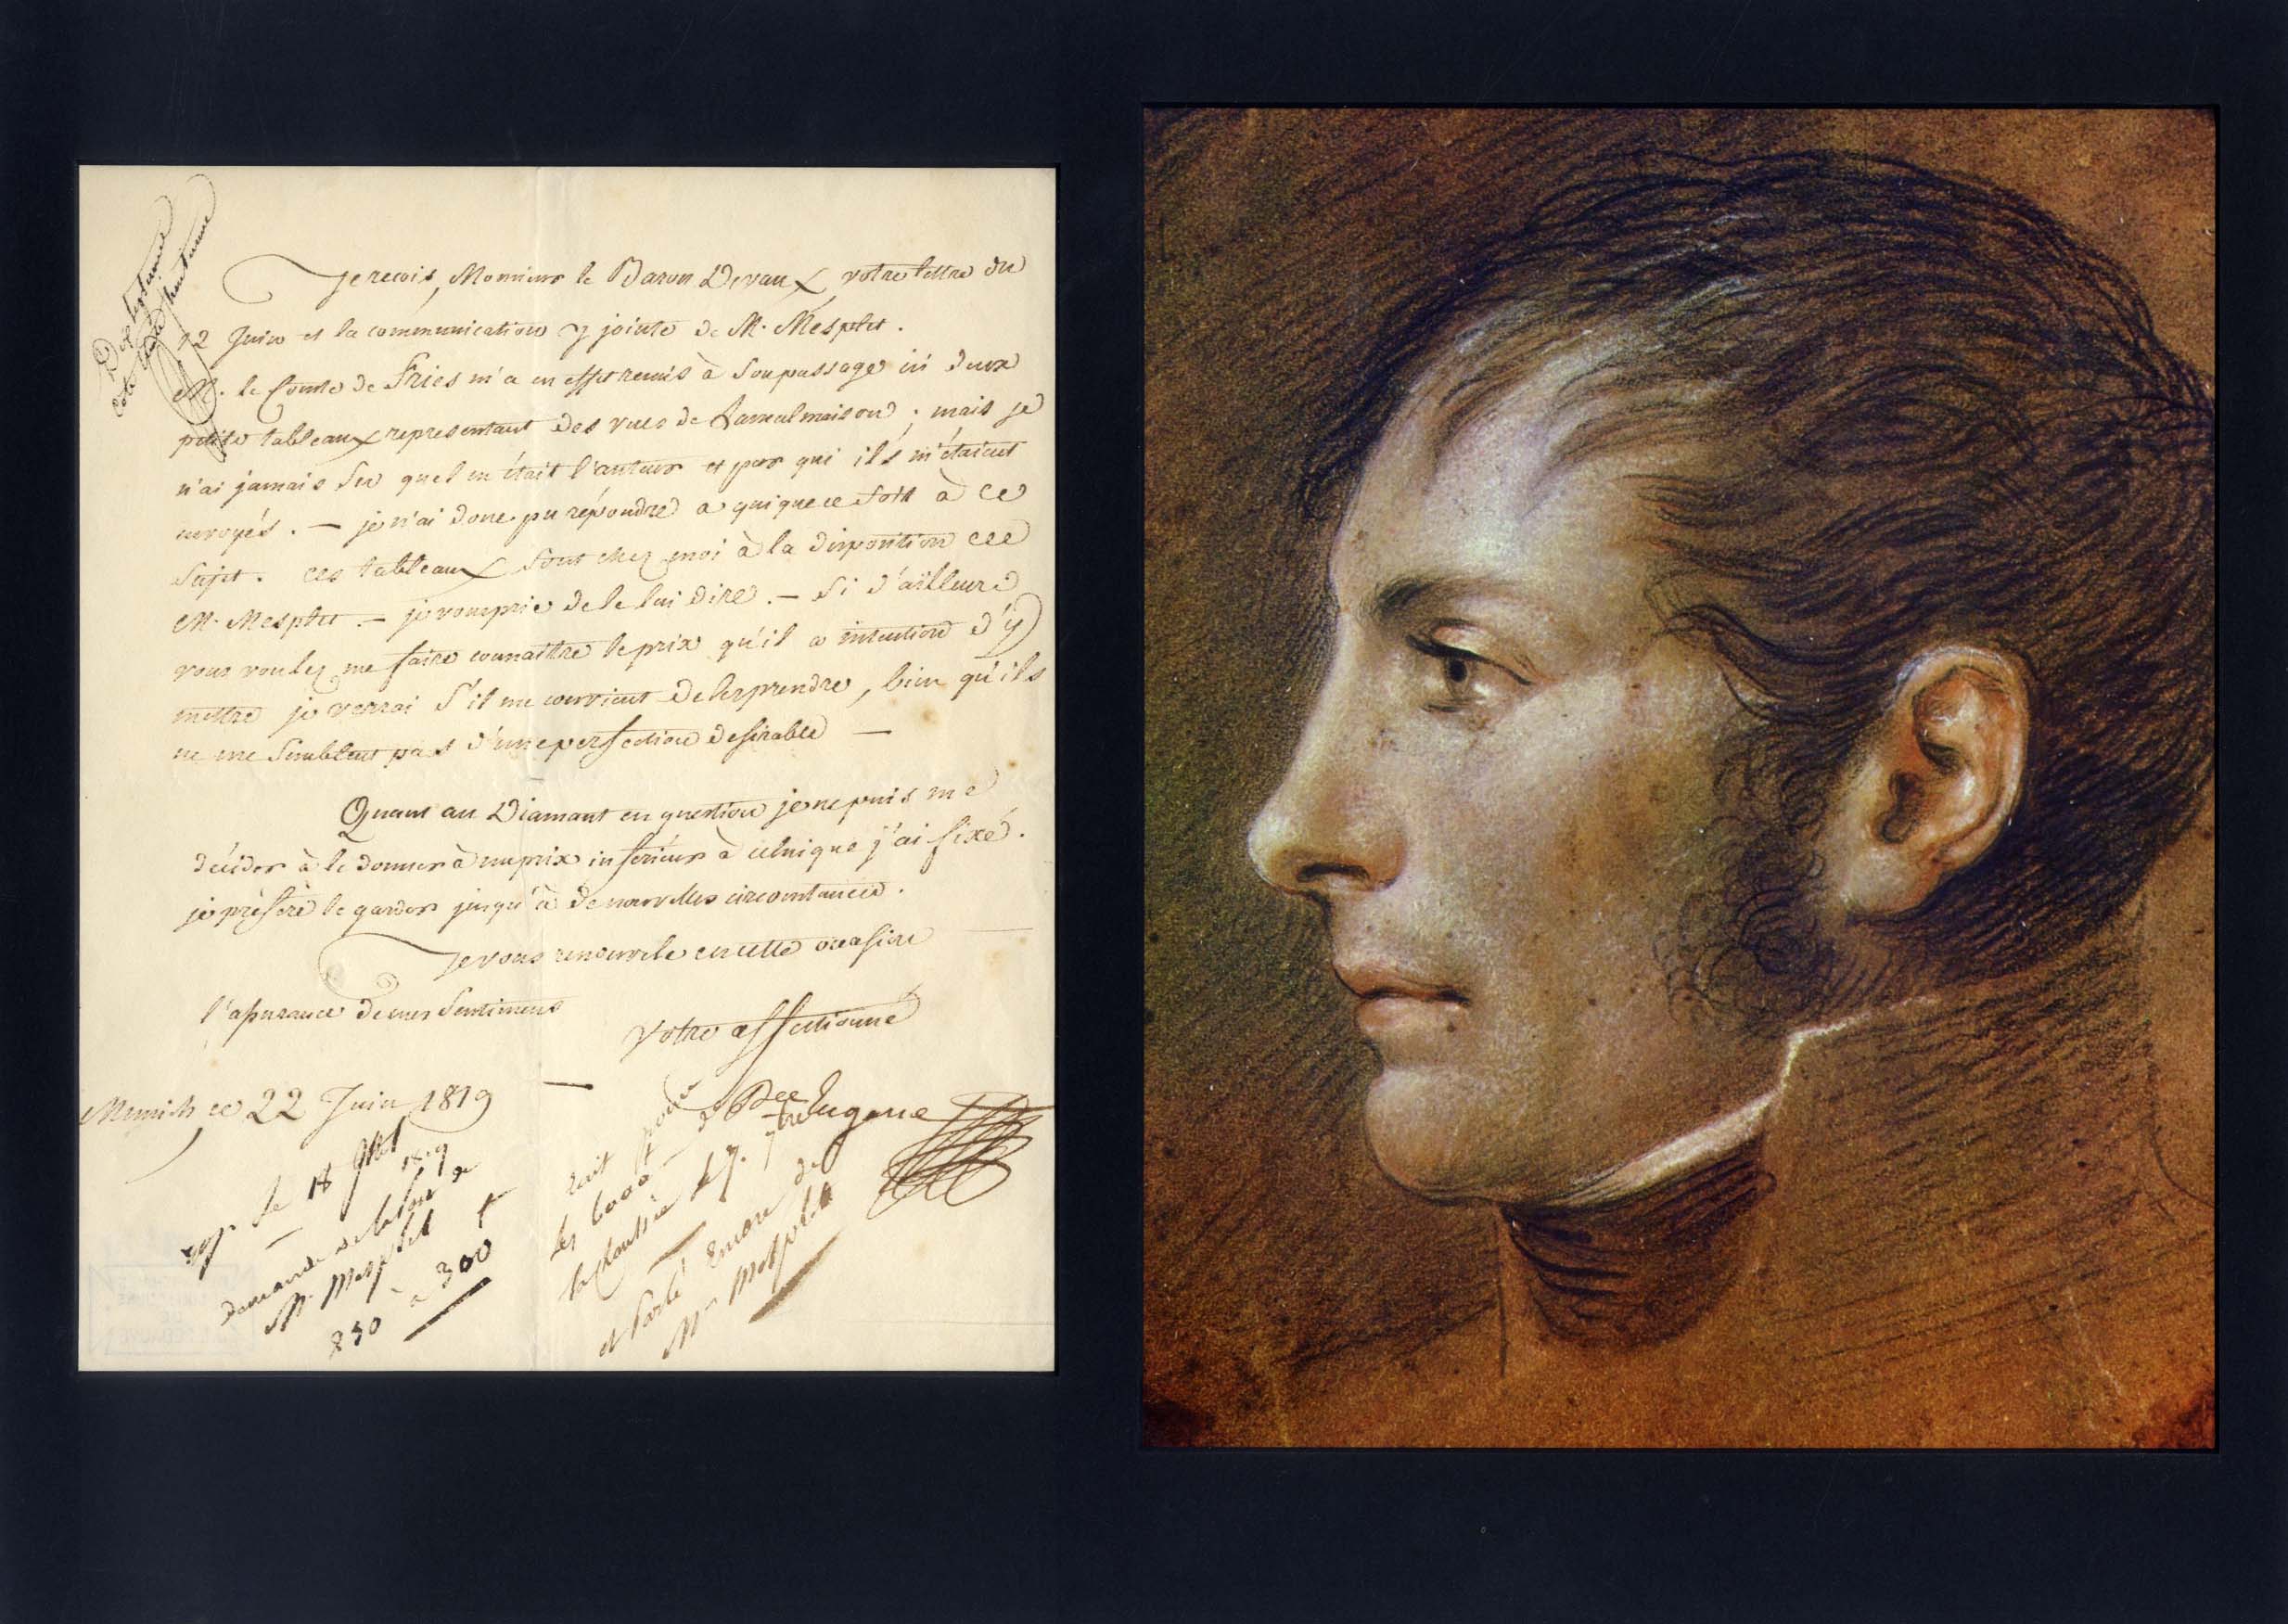 Je recois, Monsieur le Baron Devaux, votre lettre du
12 Juin et la communication y jointe de M. Mesplet.
M. le Comte de Fries m'a en effet remis à son passage ici deux
petits tableaux representant des vues de Lamalmaison; mais je
n'ai jamais su quel en était l'auteur et par qui ils m'étaient
envoyés. — je n'ai donc pu répondre a qui que ce soit à ce
sujet. ces tableaux sont chez moi à la disposition de
M. Mesplet. — je vous prie de le lui dire. — Si d'ailleurs
vous voulez me faire connaitre le prix qu'il a intention d'y
mettre je verrai s'il me convient de les prendre, bien qu'ils
ne me semblent pas d'une perfection desirable —
Quant au Diamant en question je ne puis me
décider à le donner à un prix inférieur à celui que j'ai fixé.
je préfère le garder jusqu'à de nouvelles circonstances.
Je vous renouvele en cette occasion
l'assurance de mes sentimens
Votre affectionné
Munich ce 22 Juin 1819 —
Eugene
le 18
1819
demande de
M. Mesplet
250 à 300
les 6000
et parlé encore de
M. Mesplet